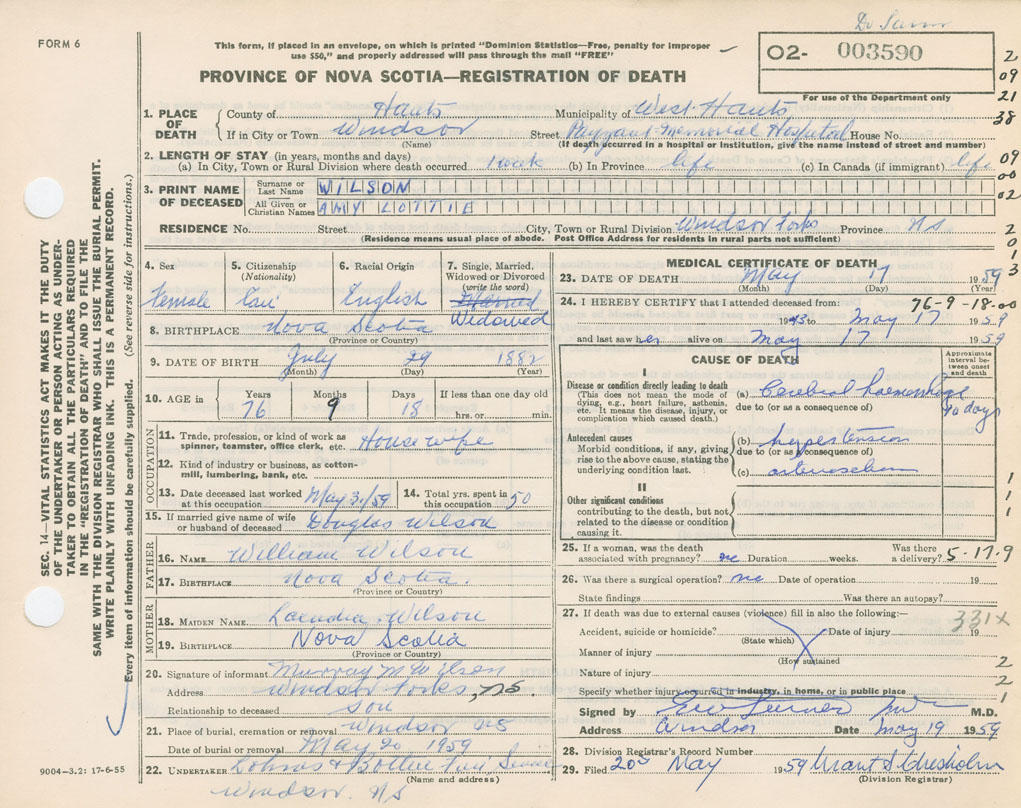 FORM 6
This form, if placed in an envelope, on which is printed "Dominion Statistics—Free, penalty for improper
use $50," and properly addressed will pass through the mail "FREE"
Dr
O2- 003590
For use of the Department only
PROVINCE OF NOVA SCOTIA—REGISTRATION OF DEATH
2
09
21
38
09
00
02
2
0
1
3
1. PLACE OF DEATH
County of Hants Municipality of West Hants
If in City or Town Windsor Street Payzant Memorial Hospital House No.
(Name) (If death occurred in a hospital or institution, give the name instead of street and number)
2. LENGTH OF STAY (in years, months and days)
(a) In City, Town or Rural Division where death occurred 1 week (b) In Province life (c) In Canada (if immigrant) life
3. PRINT NAME OF DECEASED
Surname or Last Name WILSON
All Given or Christian Names AMY LOTTIE
RESIDENCE No. Street City, Town or Rural Division Windsor Forks Province NS
(Residence means usual place of abode. Post Office Address for residents in rural parts not sufficient)
4. Sex 5. Citizenship (Nationality) 6. Racial Origin 7. Single, Married, Widowed or Divorced (write the word)
Female Can English Married
Widowed
8. BIRTHPLACE Nova Scotia
(Province or Country)
9. DATE OF BIRTH July 29 1882
(Month) (Day) (Year)
10. AGE in Years Months Days If less than one day old
76 9 18 hrs. or min.
OCCUPATION
11. Trade, profession, or kind of work as spinner, teamster, office clerk, etc. House wife
12. Kind of industry or business, as cotton-mill, lumbering, bank, etc.
13. Date deceased last worked at this occupation May 3/59 14. Total yrs. spent in this occupation 50
15. If married give name of wife or husband of deceased Douglas Wilson
FATHER
16. NAME William Wilson
17. BIRTHPLACE Nova Scotia.
(Province or Country)
MOTHER
18. MAIDEN NAME Wilson
19. BIRTHPLACE Nova Scotia
(Province or Country)
20. Signature of informant Murray M Wilson
Address Windsor Forks, NS.
Relationship to deceased son
21. Place of burial, cremation or removal Windsor NS
Date of burial or removal May 20 1959
22. UNDERTAKER
(Name and address)
Windsor. NS
MEDICAL CERTIFICATE OF DEATH
23. DATE OF DEATH May 17 1959
(Month) (Day) (Year)
24. I HEREBY CERTIFY that I attended deceased from: 76-9-18-00
1943 to May 17 1959
and last saw her alive on May 17 1959
CAUSE OF DEATH
Approximate interval between onset and death
I
Disease or condition directly leading to death
(This does not mean the mode of dying, e.g., heart failure, asthenia, etc. It means the disease, injury, or complication which caused death.)
(a) Cerebral haemorrhage 10 days
due to (or as a consequence of)
Antecedent causes
Morbid conditions, if any, giving rise to the above cause, stating the underlying condition last.
(b) hypertension
due to (or as a consequence of)
(c)
II
Other significant conditions
contributing to the death, but not related to the disease or condition causing it.
1
1
1
25. If a woman, was the death associated with pregnancy? no Duration weeks. Was there a delivery? 5-17.9
26. Was there a surgical operation? no Date of operation 19
State findings Was there an autopsy?
27. If death was due to external causes (violence) fill in also the following:— 331X
Accident, suicide or homicide? Date of injury 19
(State which)
Manner of injury
(How sustained
Nature of injury
Specify whether injury occurred in industry, in home, or in public place
2
2
1
Signed by M.D.
Address Windsor Date May 19 1959
28. Division Registrar's Record Number
29. Filed 20 May 1959 Grant S Chisholm
(Division Registrar)
SEC. 14—VITAL STATISTICS ACT MAKES IT THE DUTY
OF THE UNDERTAKER OR PERSON ACTING AS UNDER-
TAKER TO OBTAIN ALL THE PARTICULARS REQUIRED
IN THE "REGISTRATION OF DEATH" AND TO FILE THE
SAME WITH THE DIVISION REGISTRAR WHO SHALL ISSUE THE BURIAL PERMIT.
WRITE PLAINLY WITH UNFADING INK. THIS IS A PERMANENT RECORD.
Every item of information should be carefully supplied. (See reverse side for instructions.)
9004-3.2: 17-6-55